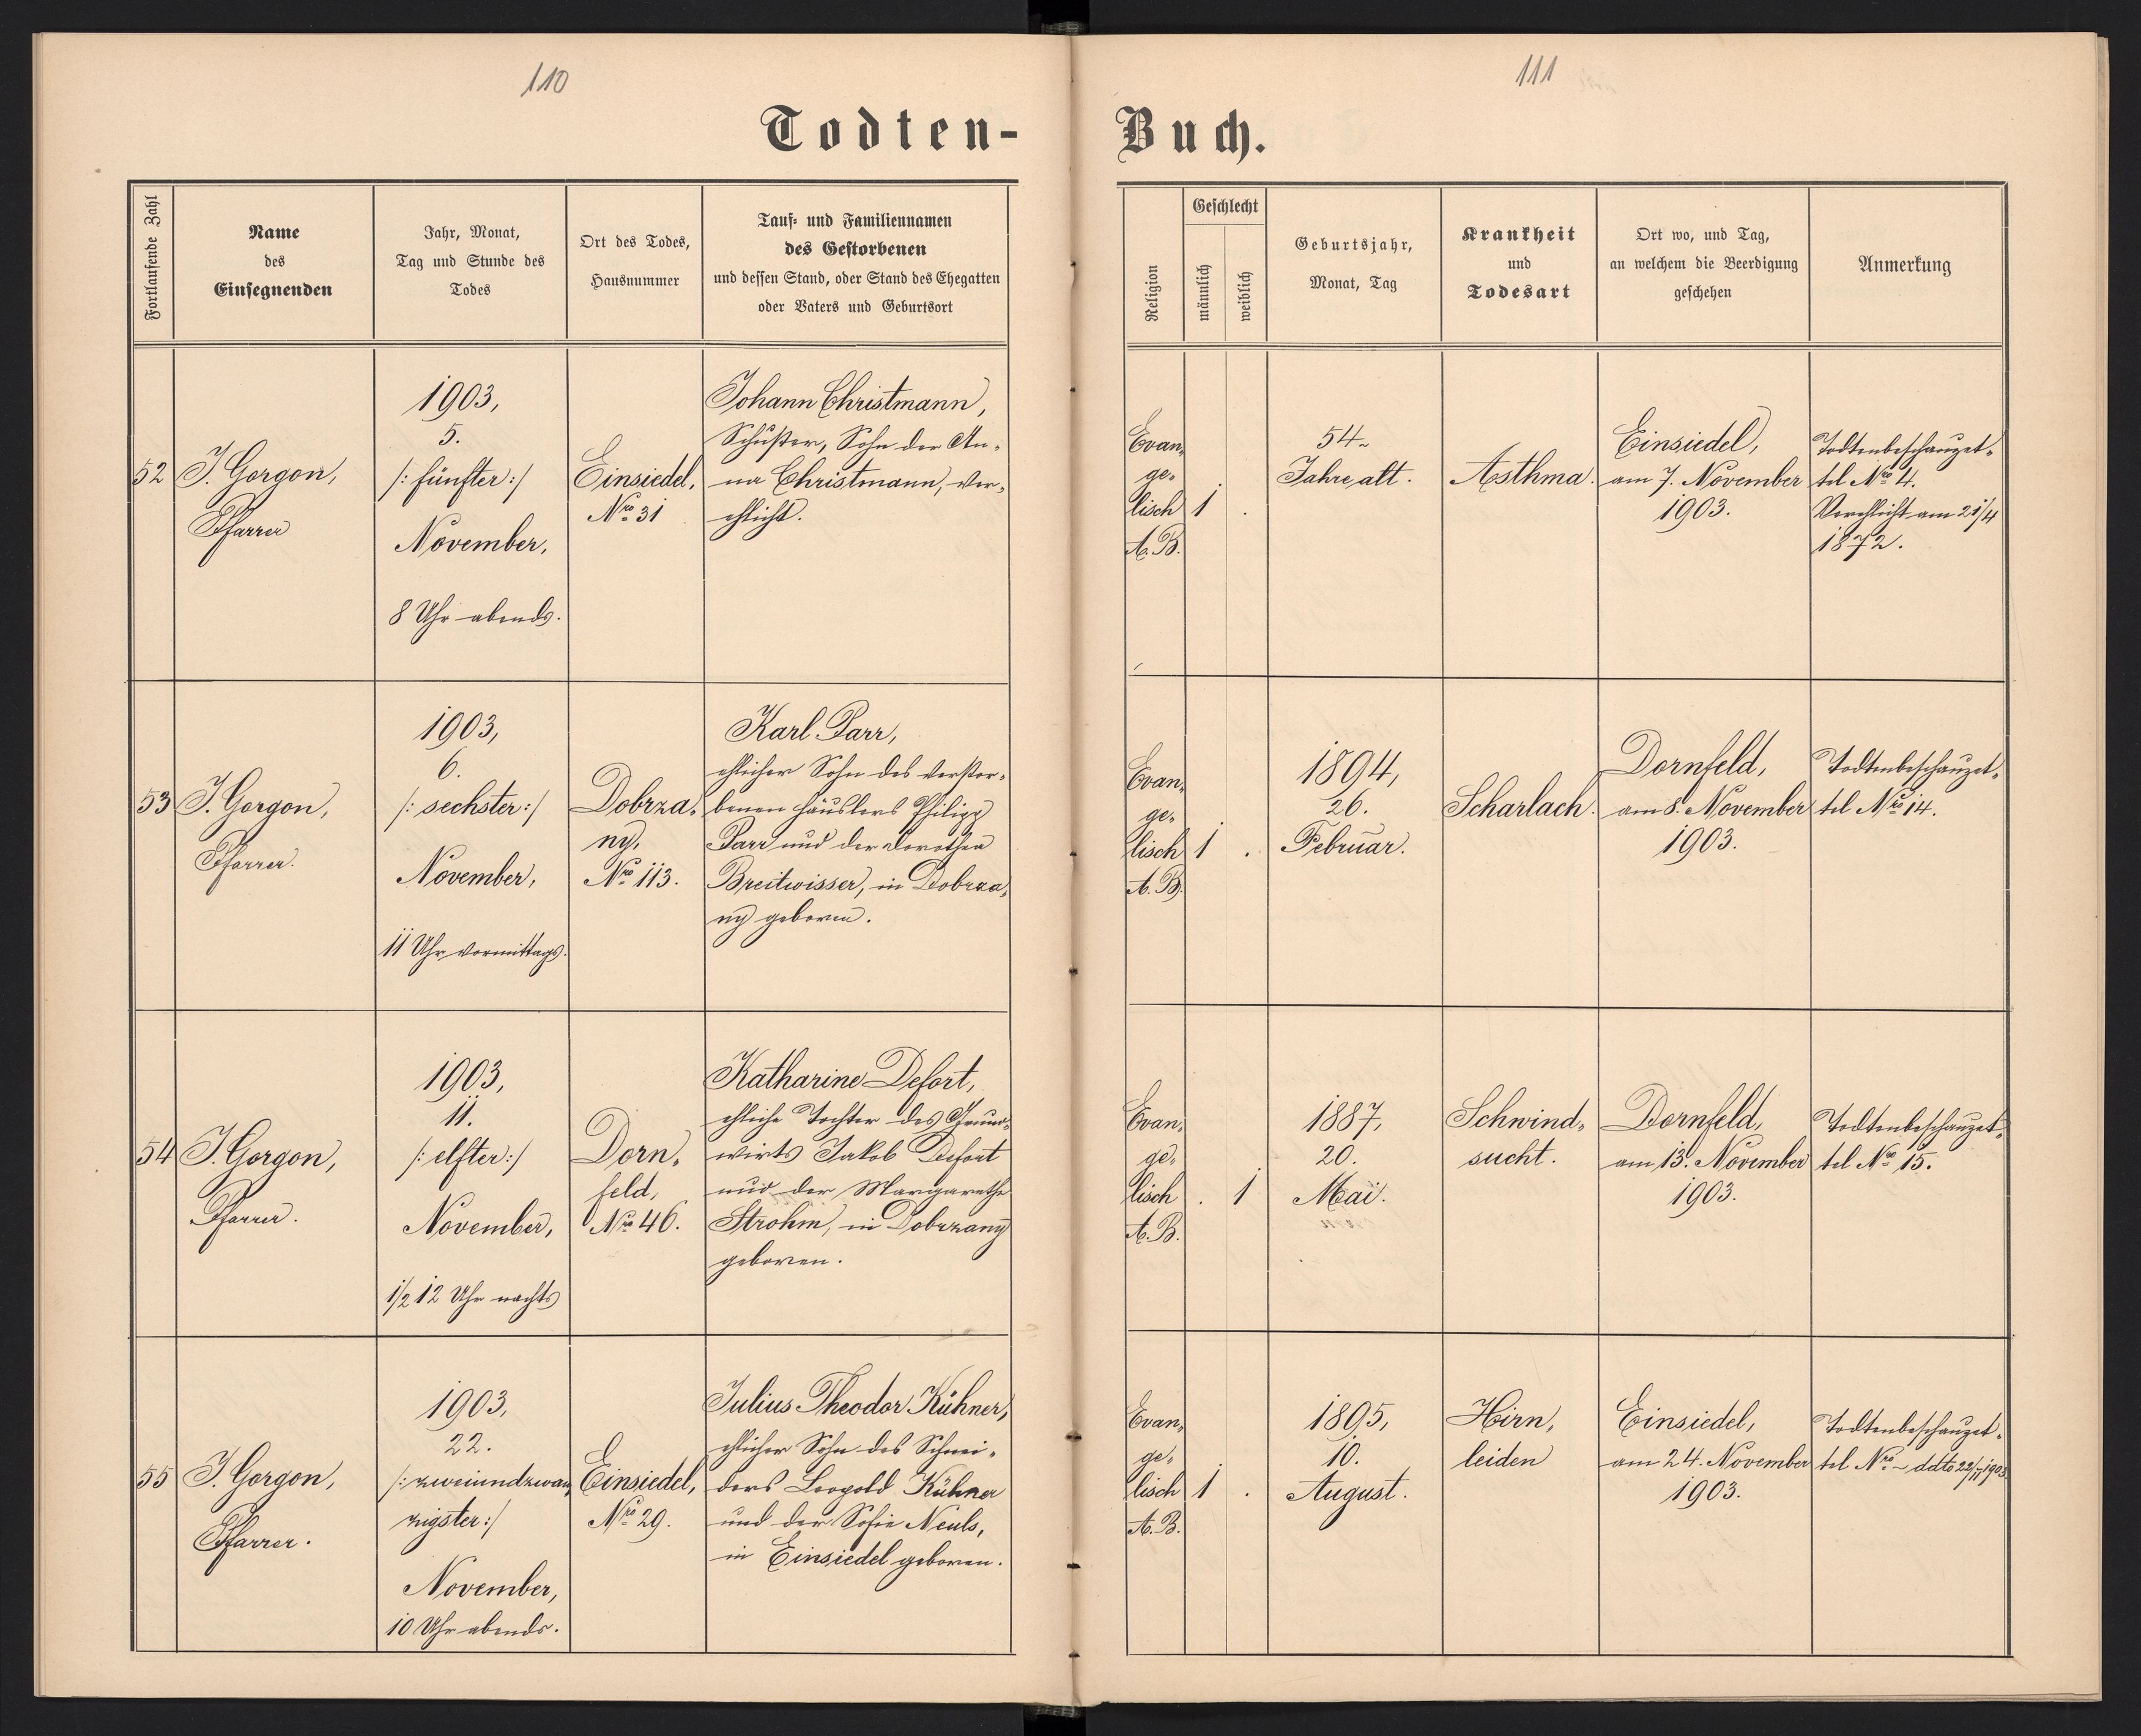 110
111
Todten-
Buch.
Fortlaufende Zahl
Name
des
Einsegnenden
Jahr, Monat,
Tag und Stunde des
Todes
Ort des Todes,
Hausnummer
Tauf- und Familiennamen
des Gestorbenen
und dessen Stand, oder Stand des Ehegatten
oder Vaters und Geburtsort
Religion
Geschlecht
männlich
weiblich
Geburtsjahr,
Monat, Tag
Krankheit
und
Todesart
Ort wo, und Tag,
an welchem die Beerdigung
geschehen
Anmerkung
52
J. Gorgon,
Pfarrer
1903,
5.
/: fünfter :/
November,
8 Uhr abends.
Einsiedel,
Nro 31
Johann Christmann,
Schuster, Sohn der An-
na Christmann, ver-
ehlicht.
Evan-
ge-
lisch
A. B.
1
.
54
Jahre alt.
Asthma.
Einsiedel,
am 7. November
1903.
Todtenbeschauzet-
tel Nro 4.
Verehlicht am 21/4
1872.
53
J. Gorgon,
Pfarrer.
1903,
6.
/: sechster :/
November,
11 Uhr vormittags.
Dobrza-
ny,
Nro 113.
Karl Parr,
ehlicher Sohn des verstor-
benen Häuslers Philipp
Parr und der Dorothea
Breitwisser, in Dobrza-
ny geboren.
Evan-
ge-
lisch
A. B.
1
.
1894,
26.
Februar.
Scharlach.
Dornfeld,
am 8. November
1903.
Todtenbeschauzet-
tel Nro 14.
54
J. Gorgon,
Pfarrer.
1903,
11.
/: elfter :/
November,
1/2 12 Uhr nachts
Dorn-
feld,
Nro 46.
Katharine Defort,
ehliche Tochter des Grund-
wirts Jakob Defort
und der Margarethe
Strohm, in Dobrzany
geboren.
Evan-
ge-
lisch
A. B.
.
1
1887,
20.
Mai.
Schwind-
sucht.
Dornfeld,
am 13. November
1903.
Todtenbeschauzet-
tel Nro 15.
55
J. Gorgon,
Pfarrer.
1903,
22.
/: zweiundzwan-
zigster :/
November,
10 Uhr abends.
Einsiedel,
Nro 29.
Julius Theodor Kühner,
ehlicher Sohn des Schnei-
ders Leopold Kühner
und der Sofie Neuls,
in Einsiedel geboren.
Evan-
ge-
lisch
A. B.
1
.
1895,
10.
August.
Hirn-
leiden
Einsiedel,
am 24. November
1903.
Todtenbeschauzet-
tel Nro - ddto 22/11 1903